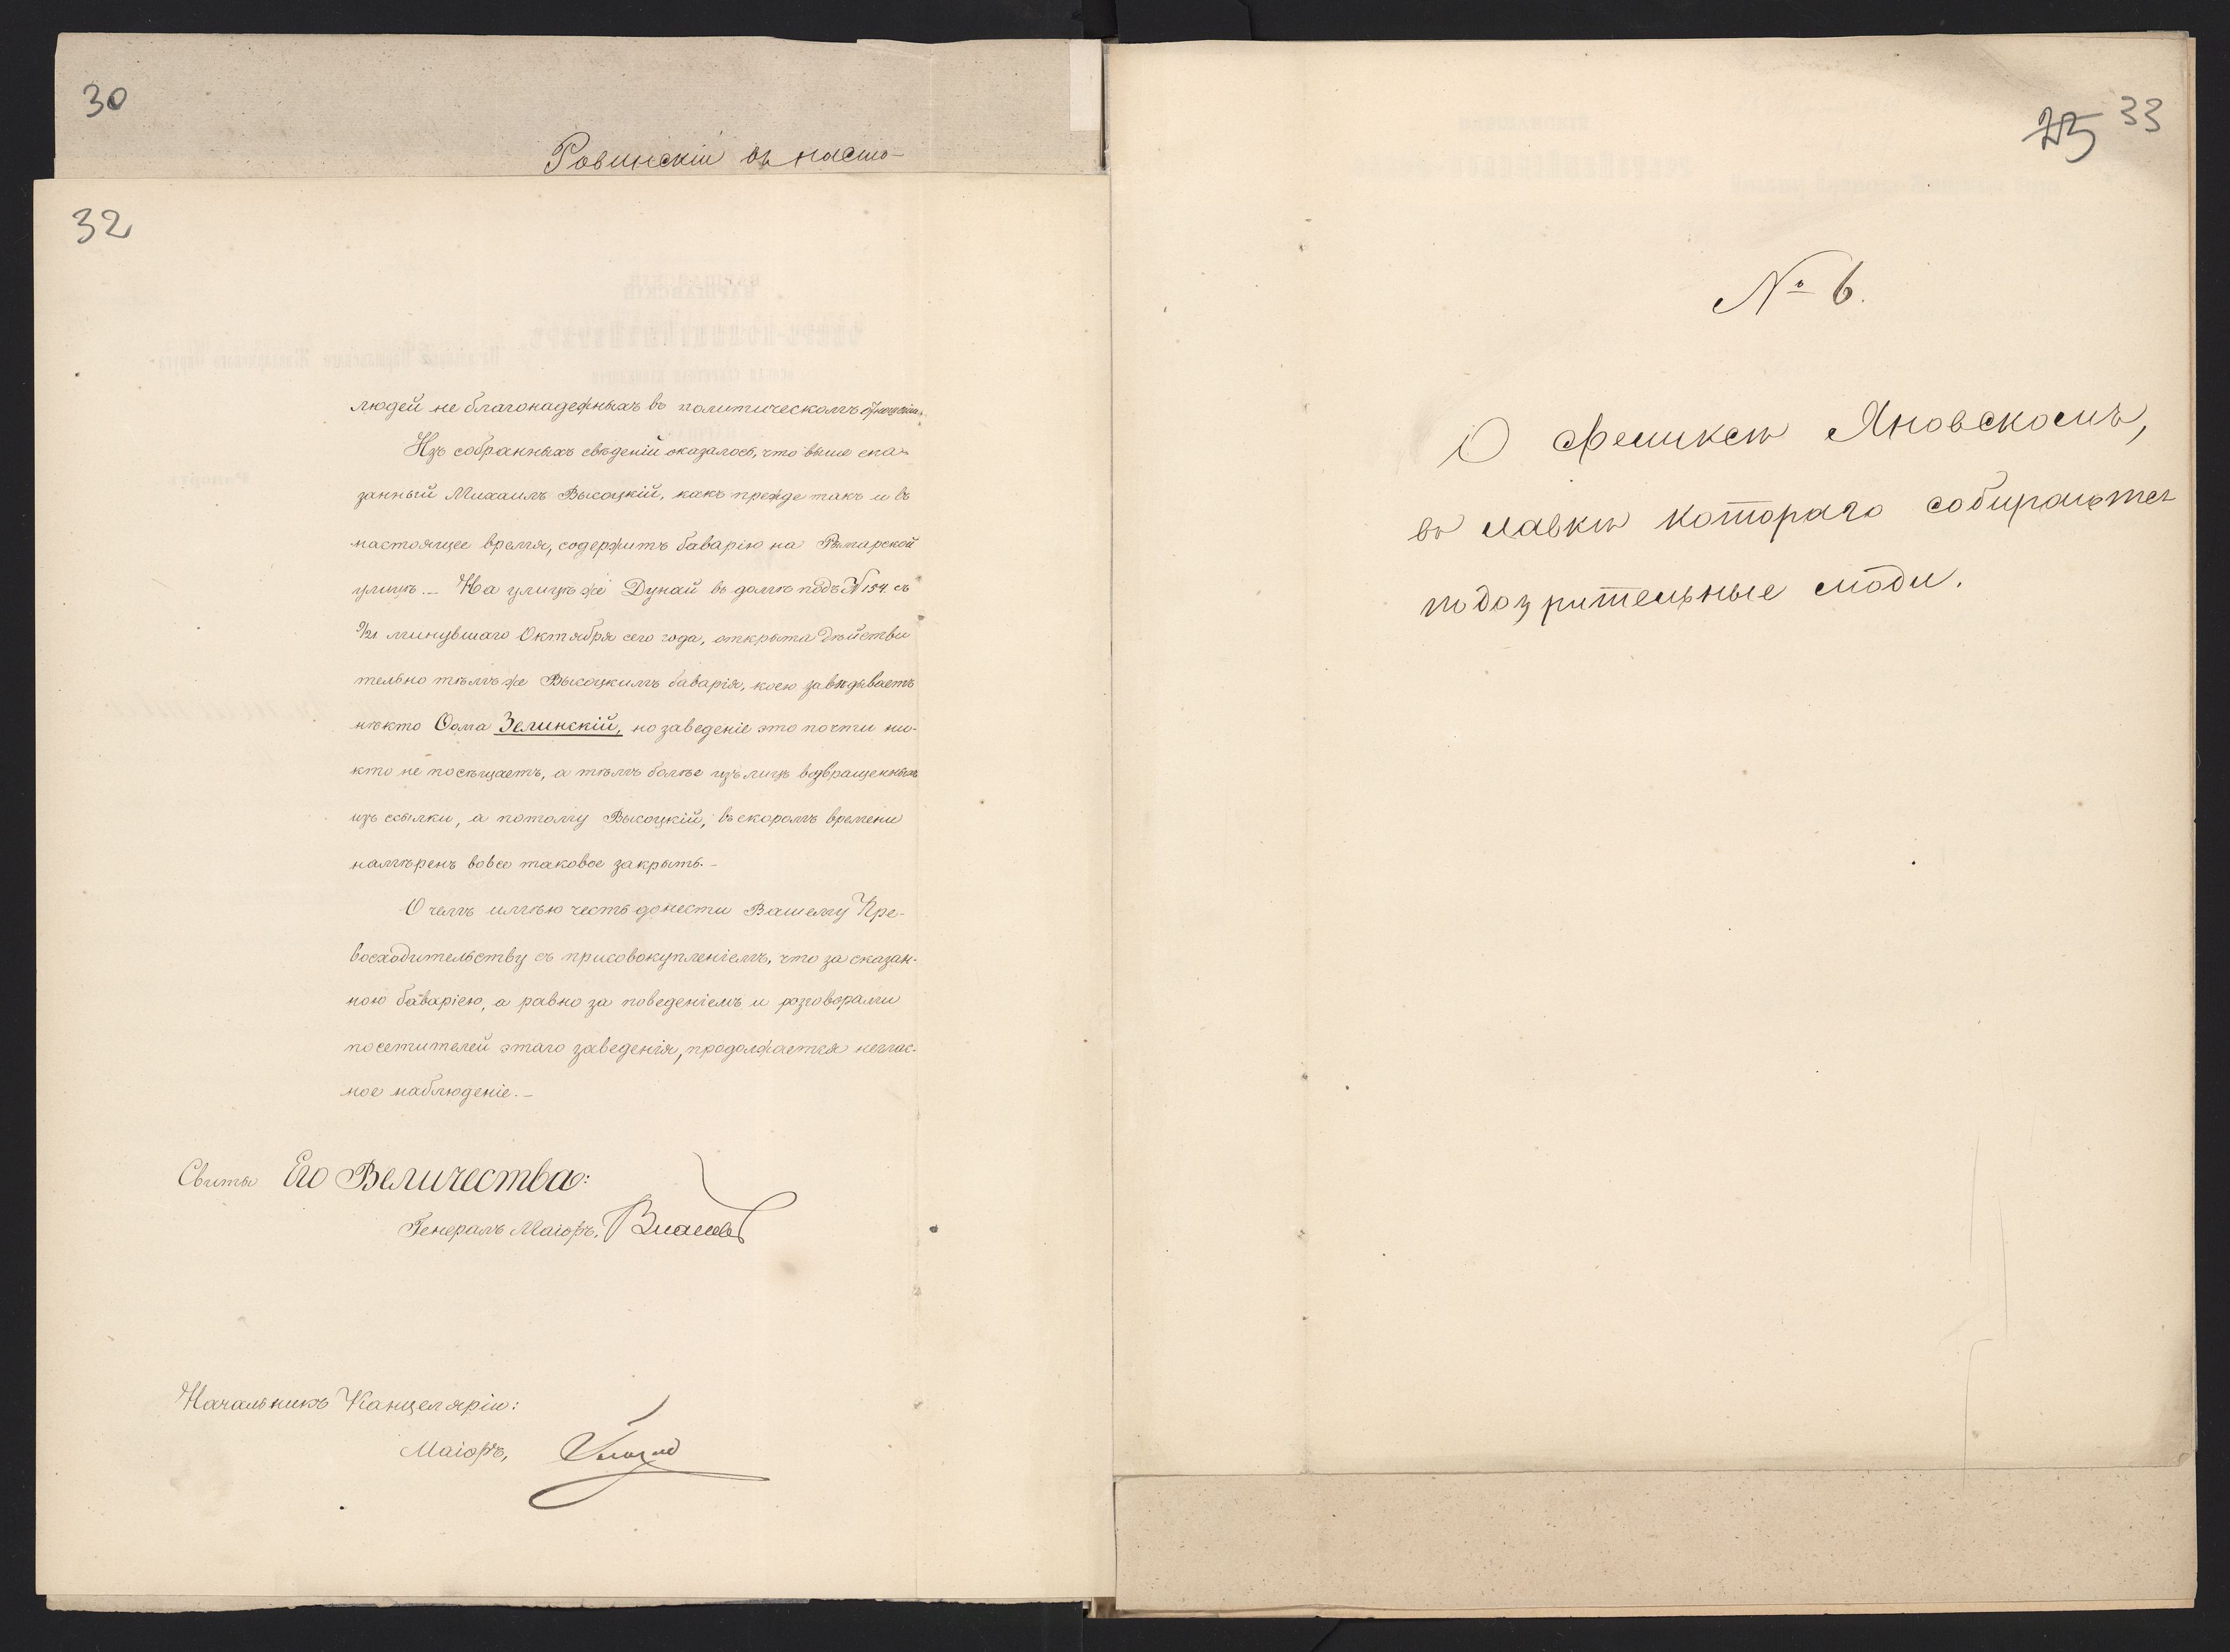 30
Ровинскій въ насто-
32
людей не благонадежныхъ въ политическомъ отношеніи.
Изъ собранныхъ свѣденій оказалось, что выше ска-
занный Михаилъ Высоцкій, какъ прежде такъ и въ
настоящее время, содержитъ баварію на Рымарской
улицѣ. — На улицѣ же Дунай въ домѣ подъ № 154 съ
9/21 минувшаго Октября сего года, открыта дѣйстви
тельно тѣмъ же Высоцкимъ баварія, коею завѣдываетъ
нѣкто Ѳома Зелинскій, но заведеніе это почти ни-
кто не посѣщаетъ, а тѣмъ болѣе изъ лицъ возвращенныхъ
изъ ссылки, а потому Высоцкій, въ скоромъ времени
намѣренъ вовсе таковое закрыть. —
О чемъ имѣю честь донести Вашему Пре-
восходительству съ присовокупленіемъ, что за сказан-
ною баваріею, а равно за поведеніемъ и разговорами
посетителей этаго заведенія, продолжается неглас-
ное наблюденіе. —
Свиты Его Величества:
Генералъ Маіоръ, Власовъ
Начальникъ Канцеляріи:
Маіоръ,
25 33
№ 6.
О Феликсѣ Яновскомъ,
въ лавкѣ котораго собираются
подозрительные люди.